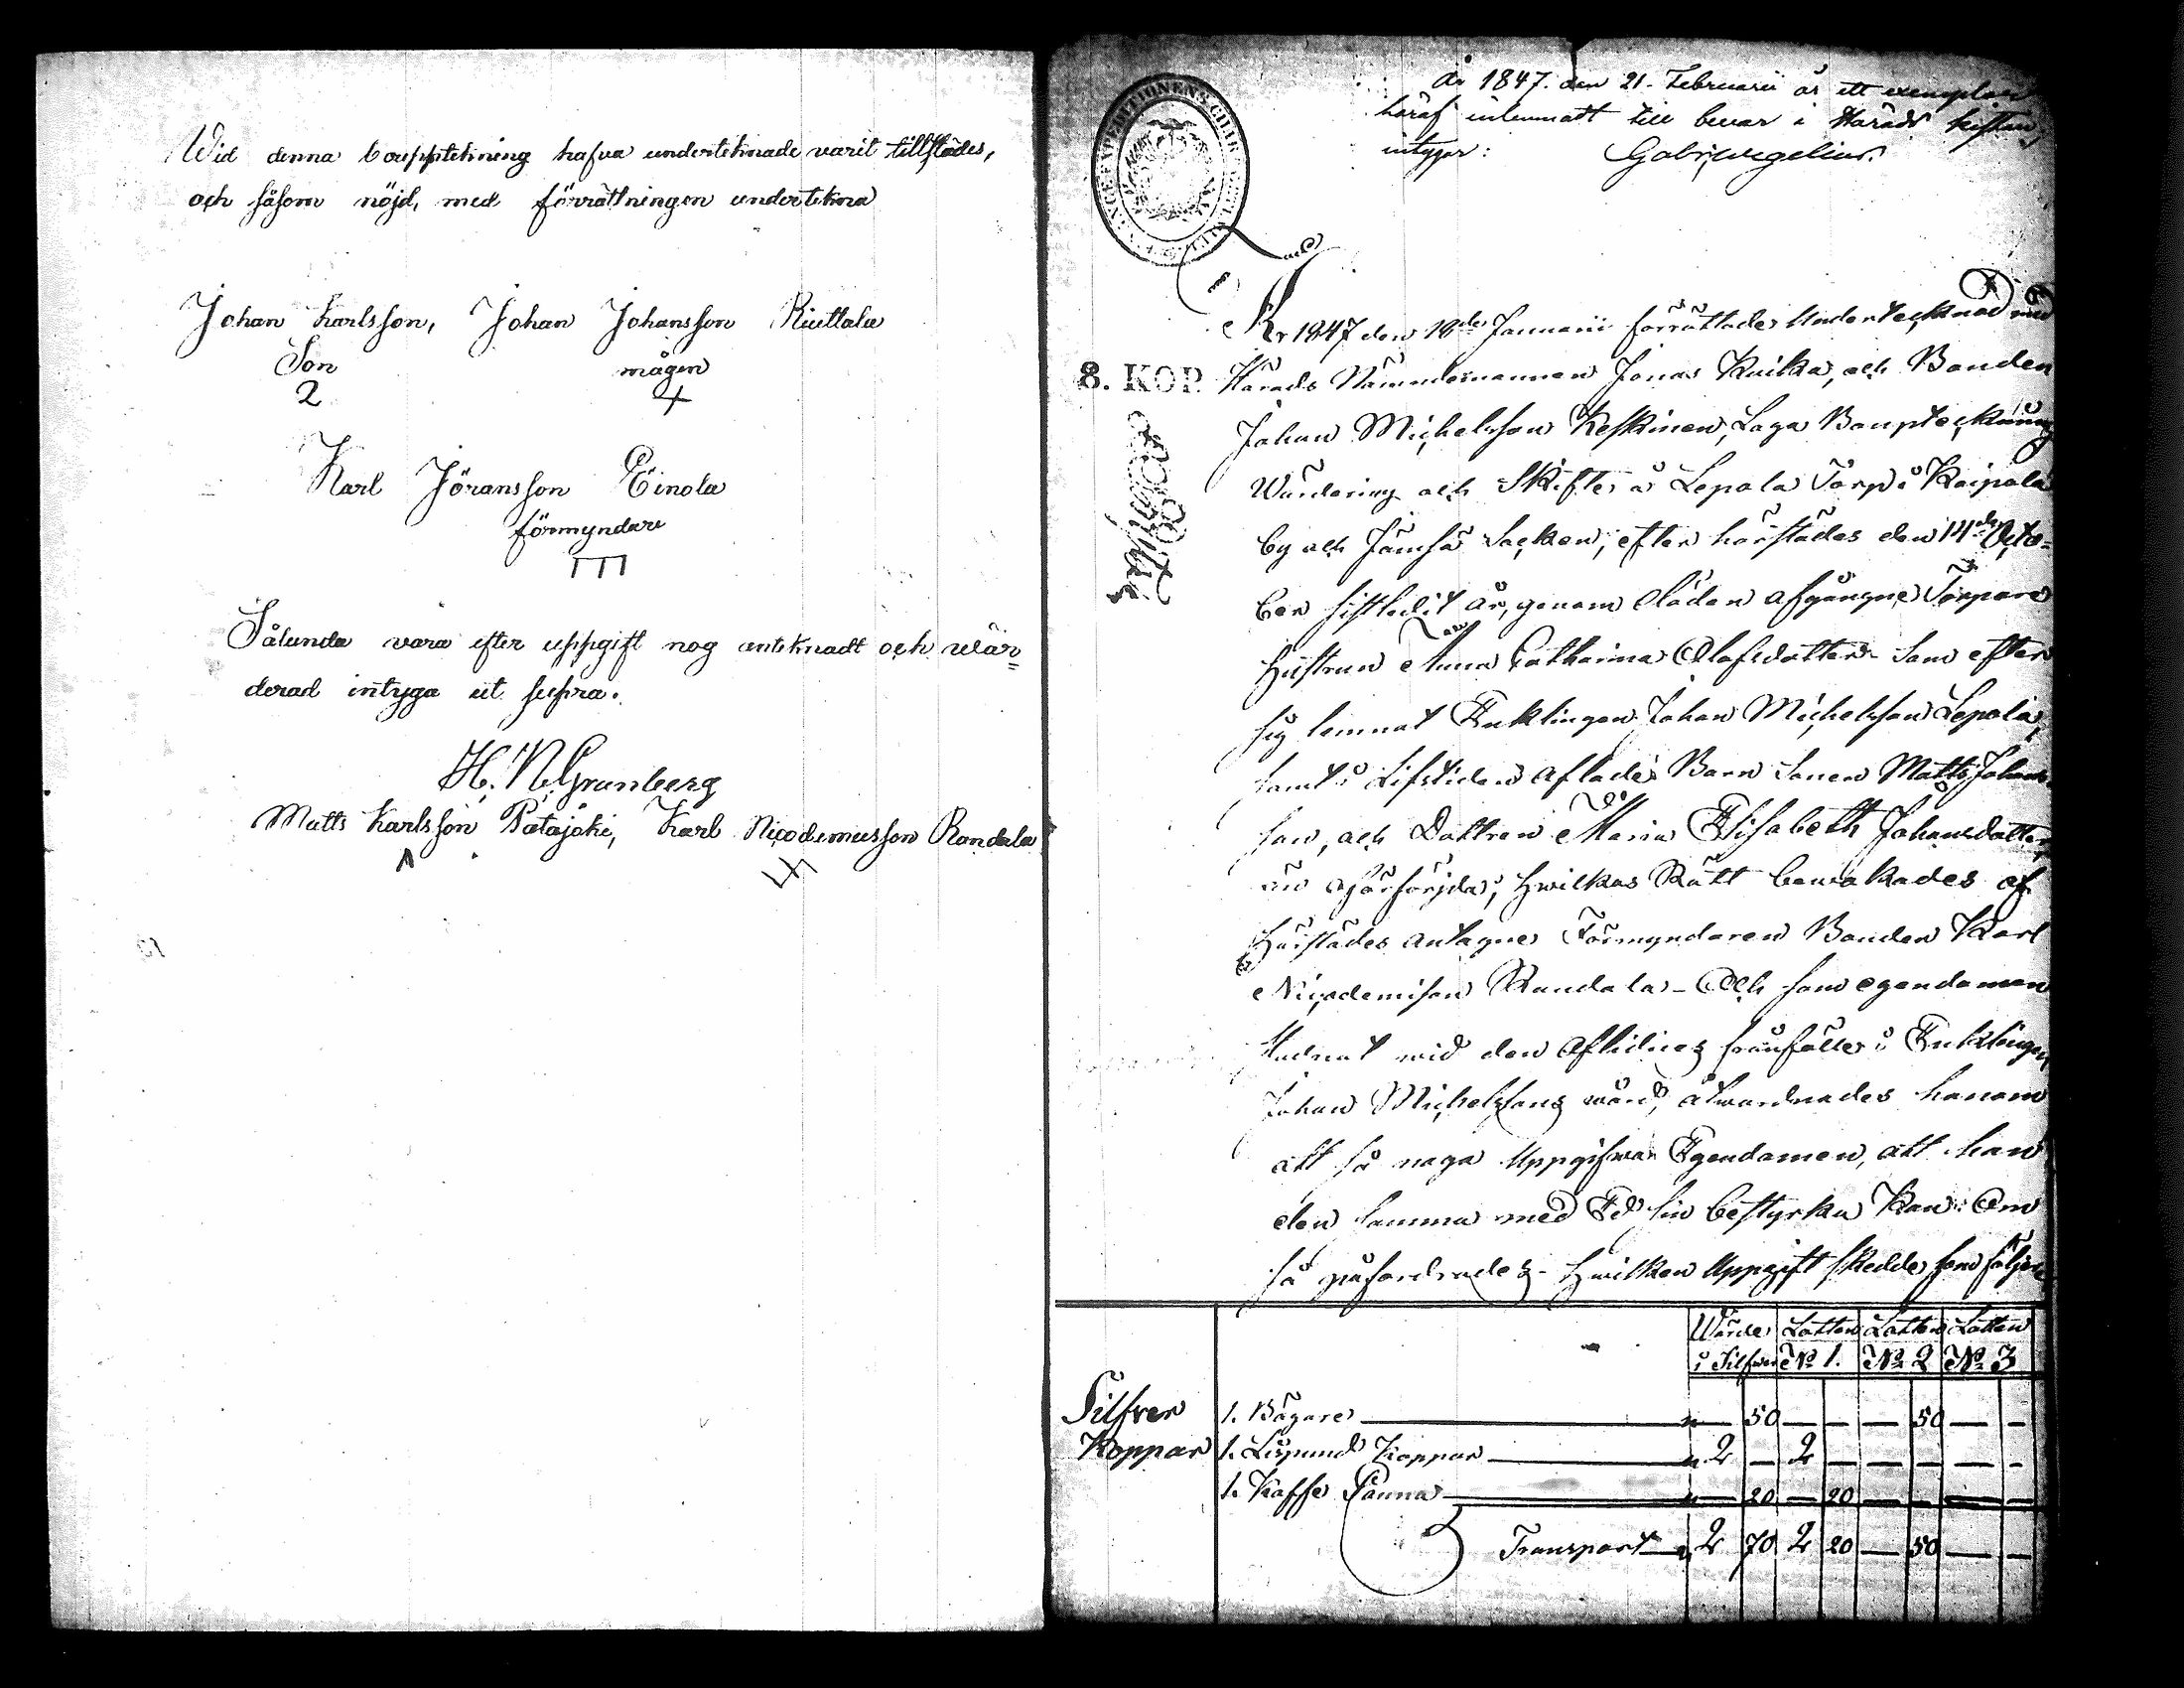 Wid denna bouppteckning hafva undertecknade varit tillstädes,
och såsom nöjd, med förrättningen underteckna
Johan Karlsson, Johan Johansson Riuttala
Son mågen
2
Karl Jöransson Einola
förmyndare
Sålunda vara efter uppgift nog antecknadt och wär=
derad intyga ut supra.
H. N. Granberg
Matts Karlsson Patajoki, Karl Nicodemusson Randala
År 1847. den 21. Februarii är ett exemplar
häraf inlemnatt till bevar i Härads kistan,
intygar: Gab: Wegelius.
År 1847 den 19de Januarii förrättades Undertecknad med
8. KOP. Härads Nämndemannen Jonas Kuikka, och Bonden
Johan Michelsson Keskinen, Laga Bouptekning
Wärdering och Skifte å Lepola Torp i Kaipola
by och Jämsä Socken, efter härstädes den 14de Octo=
ber sistledit år, genom döden afgångne Torpare
Hustrun Anna Catharina Olofsdotter som efter
sig lemnat Enklingen Johan Michelsson Lepola,
samt i Lifstiden aflade Barn Sonen Matts Johans
son, och Dottren Maria Elisabeth Johansdotter,
hwilkas Rätt bewakades af
härstädes antagne Förmyndaren Bonden Karl
Nicodemison Randala - Och som egendomen
stadnat wid den Aflidnes frånfälle i Enklingen
Johan Michelssons wård, åtwardnades honom
att så noga Uppgifwa Egendomen, att han
den samma med Ed sin bestyrka Kan: Om
så påfordrades - Hwilken Uppgift skedde som följer
Wärde Lotten Lotten Lotten
i Silfwer No 1. No 2 No 3
Silfver 1. Bägare — 50 — — — 50 — —
Koppar 1. Lispund Koppar 2 — 2 — — — — —
1. Kaffe Panna — 20 — 20 — — — —
Transport 2 70 2 20 — 50 — —